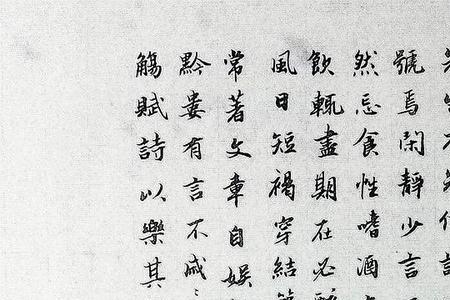 號焉閑靜少言
然忘食性嗜酒
飲輒盡期在必
風日短褐穿結
常著文章自娛
黔婁有言不戚
觴賦詩以樂其